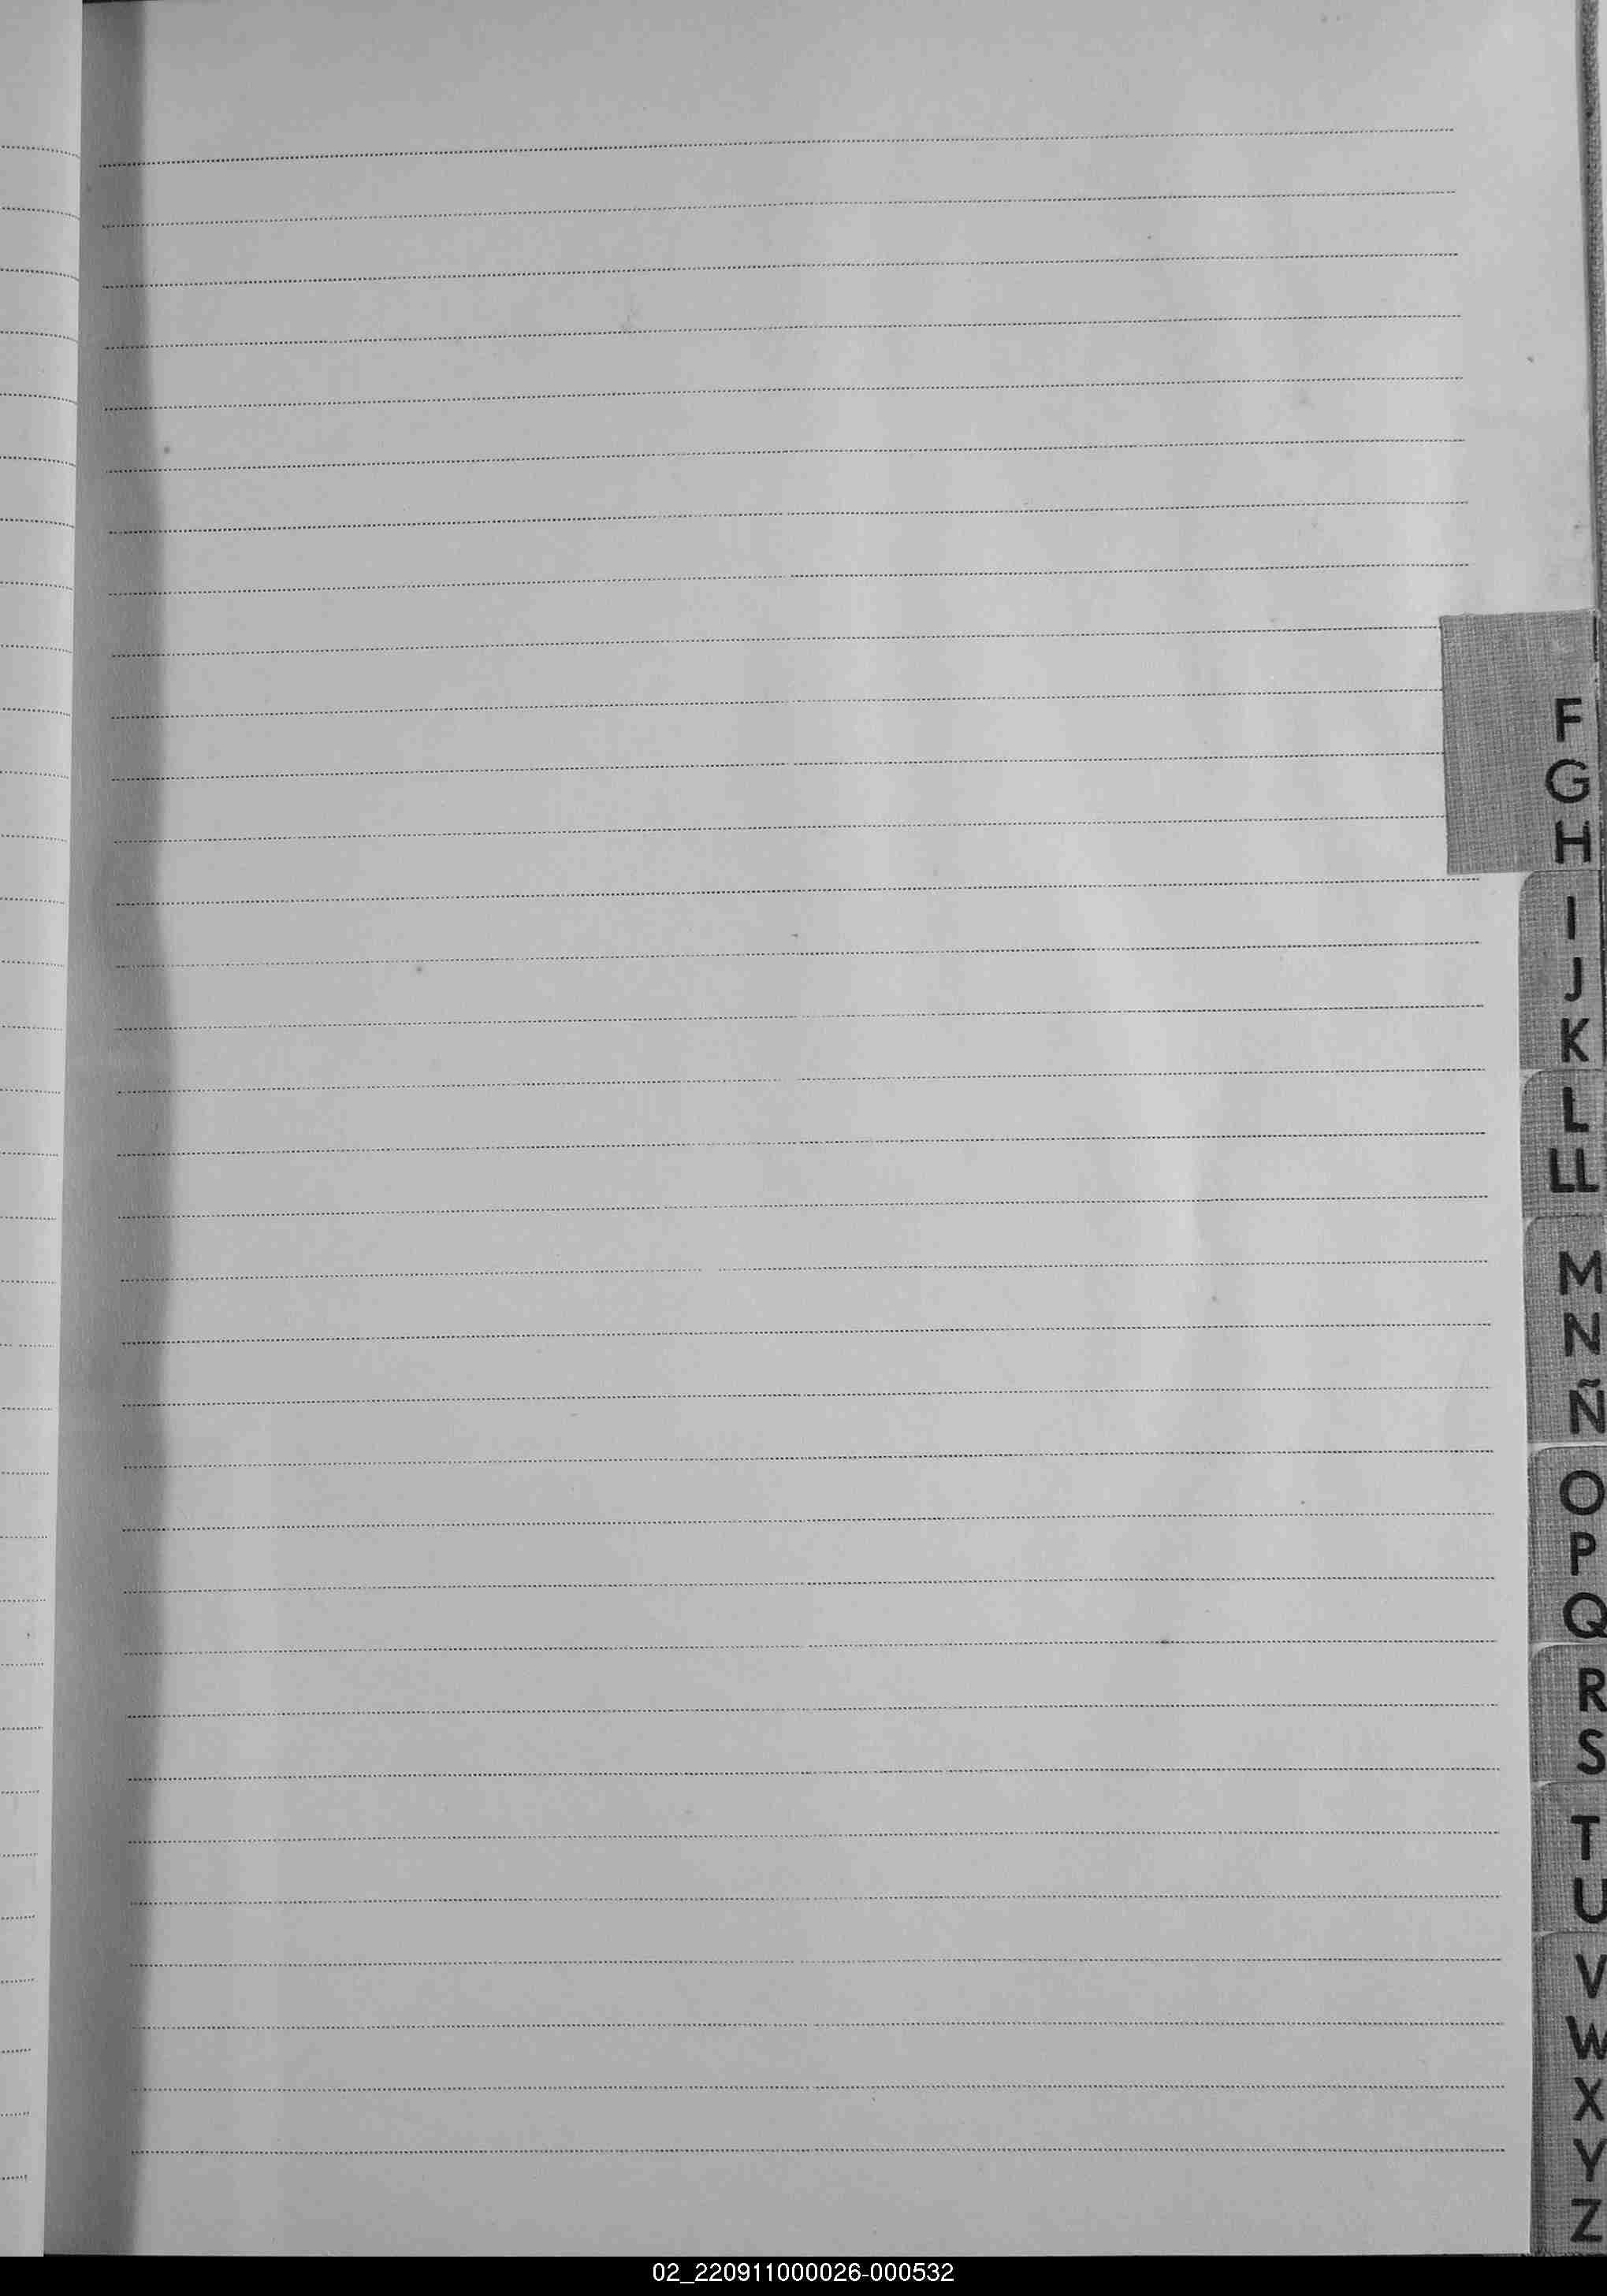 F
G
H
I
J
K
L
LL
M
N
Ñ
O
P
Q
R
S
T
U
V
W
X
Y
Z
02_220911000026-000532